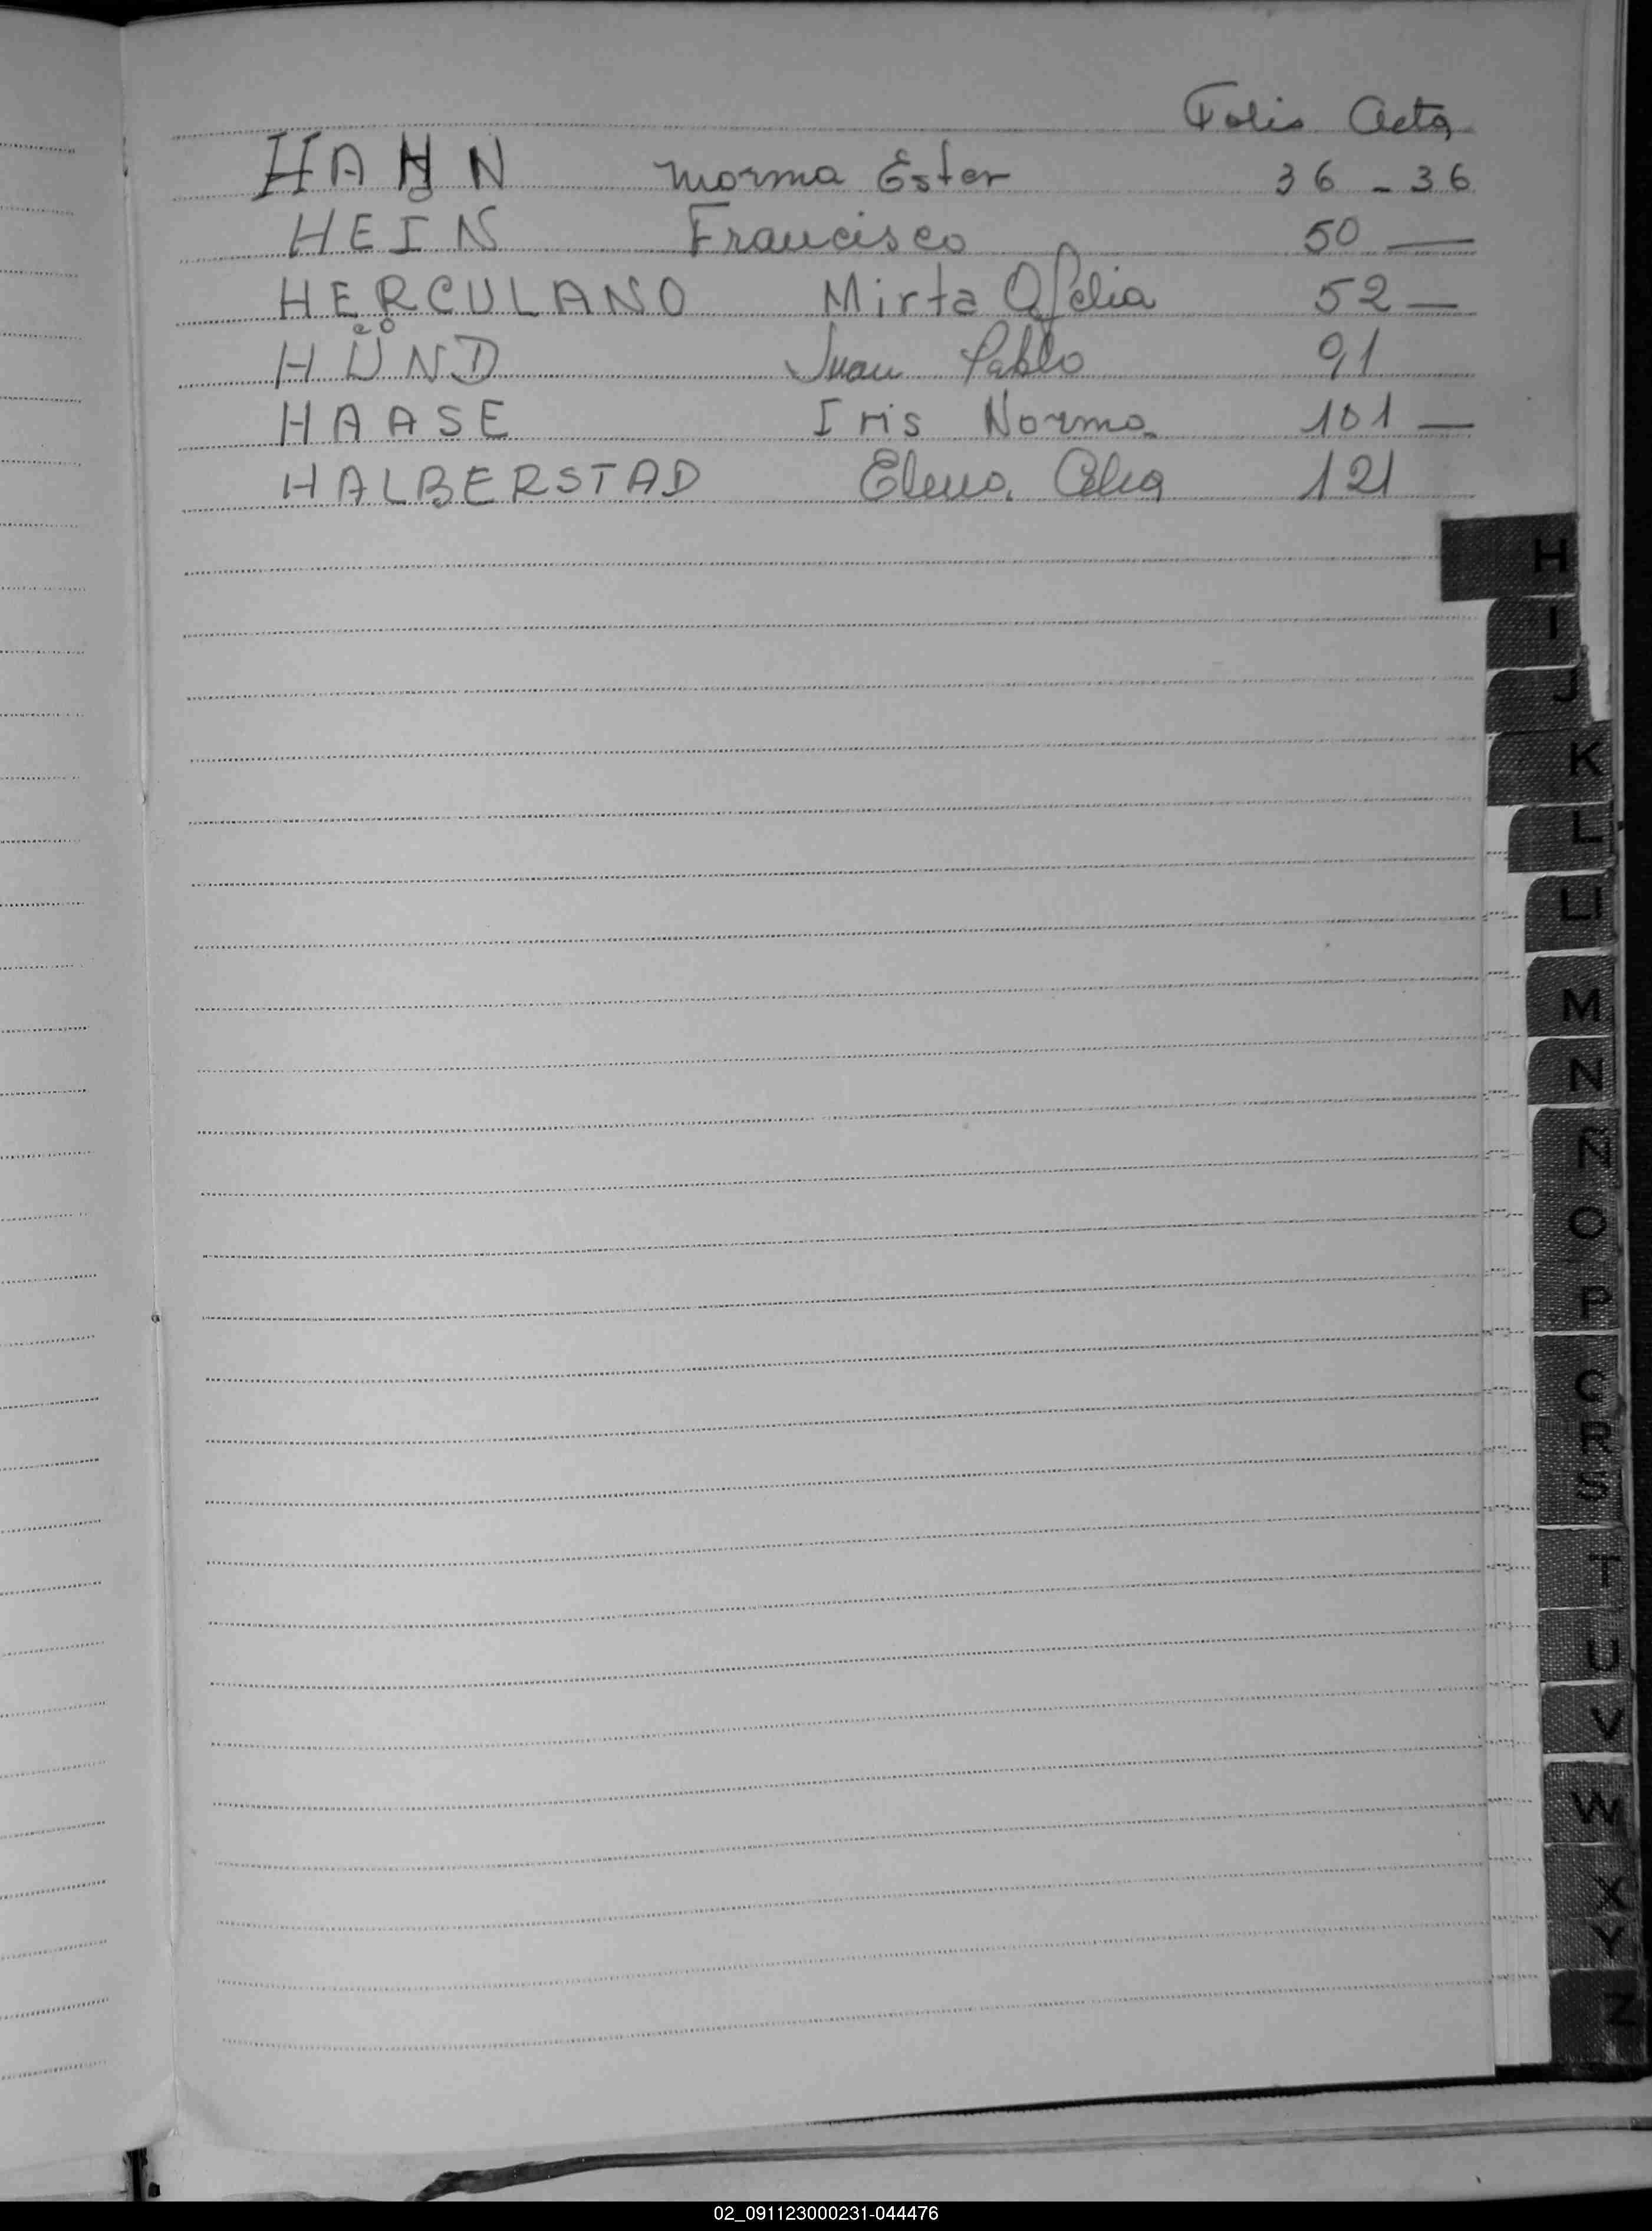 Folio Acta
HAHN Norma Ester 36 - 36
HEIN Francisco 50 —
HERCULANO Mirta Ofelia 52 —
HÜND Juan Pablo 91
HAASE Iris Norma 101 —
HALBERSTAD Elena Celia 121
H
I
J
K
L
Ll
M
N
Ñ
O
P
Q
R
S
T
U
V
W
X
Y
Z
02_091123000231-044476